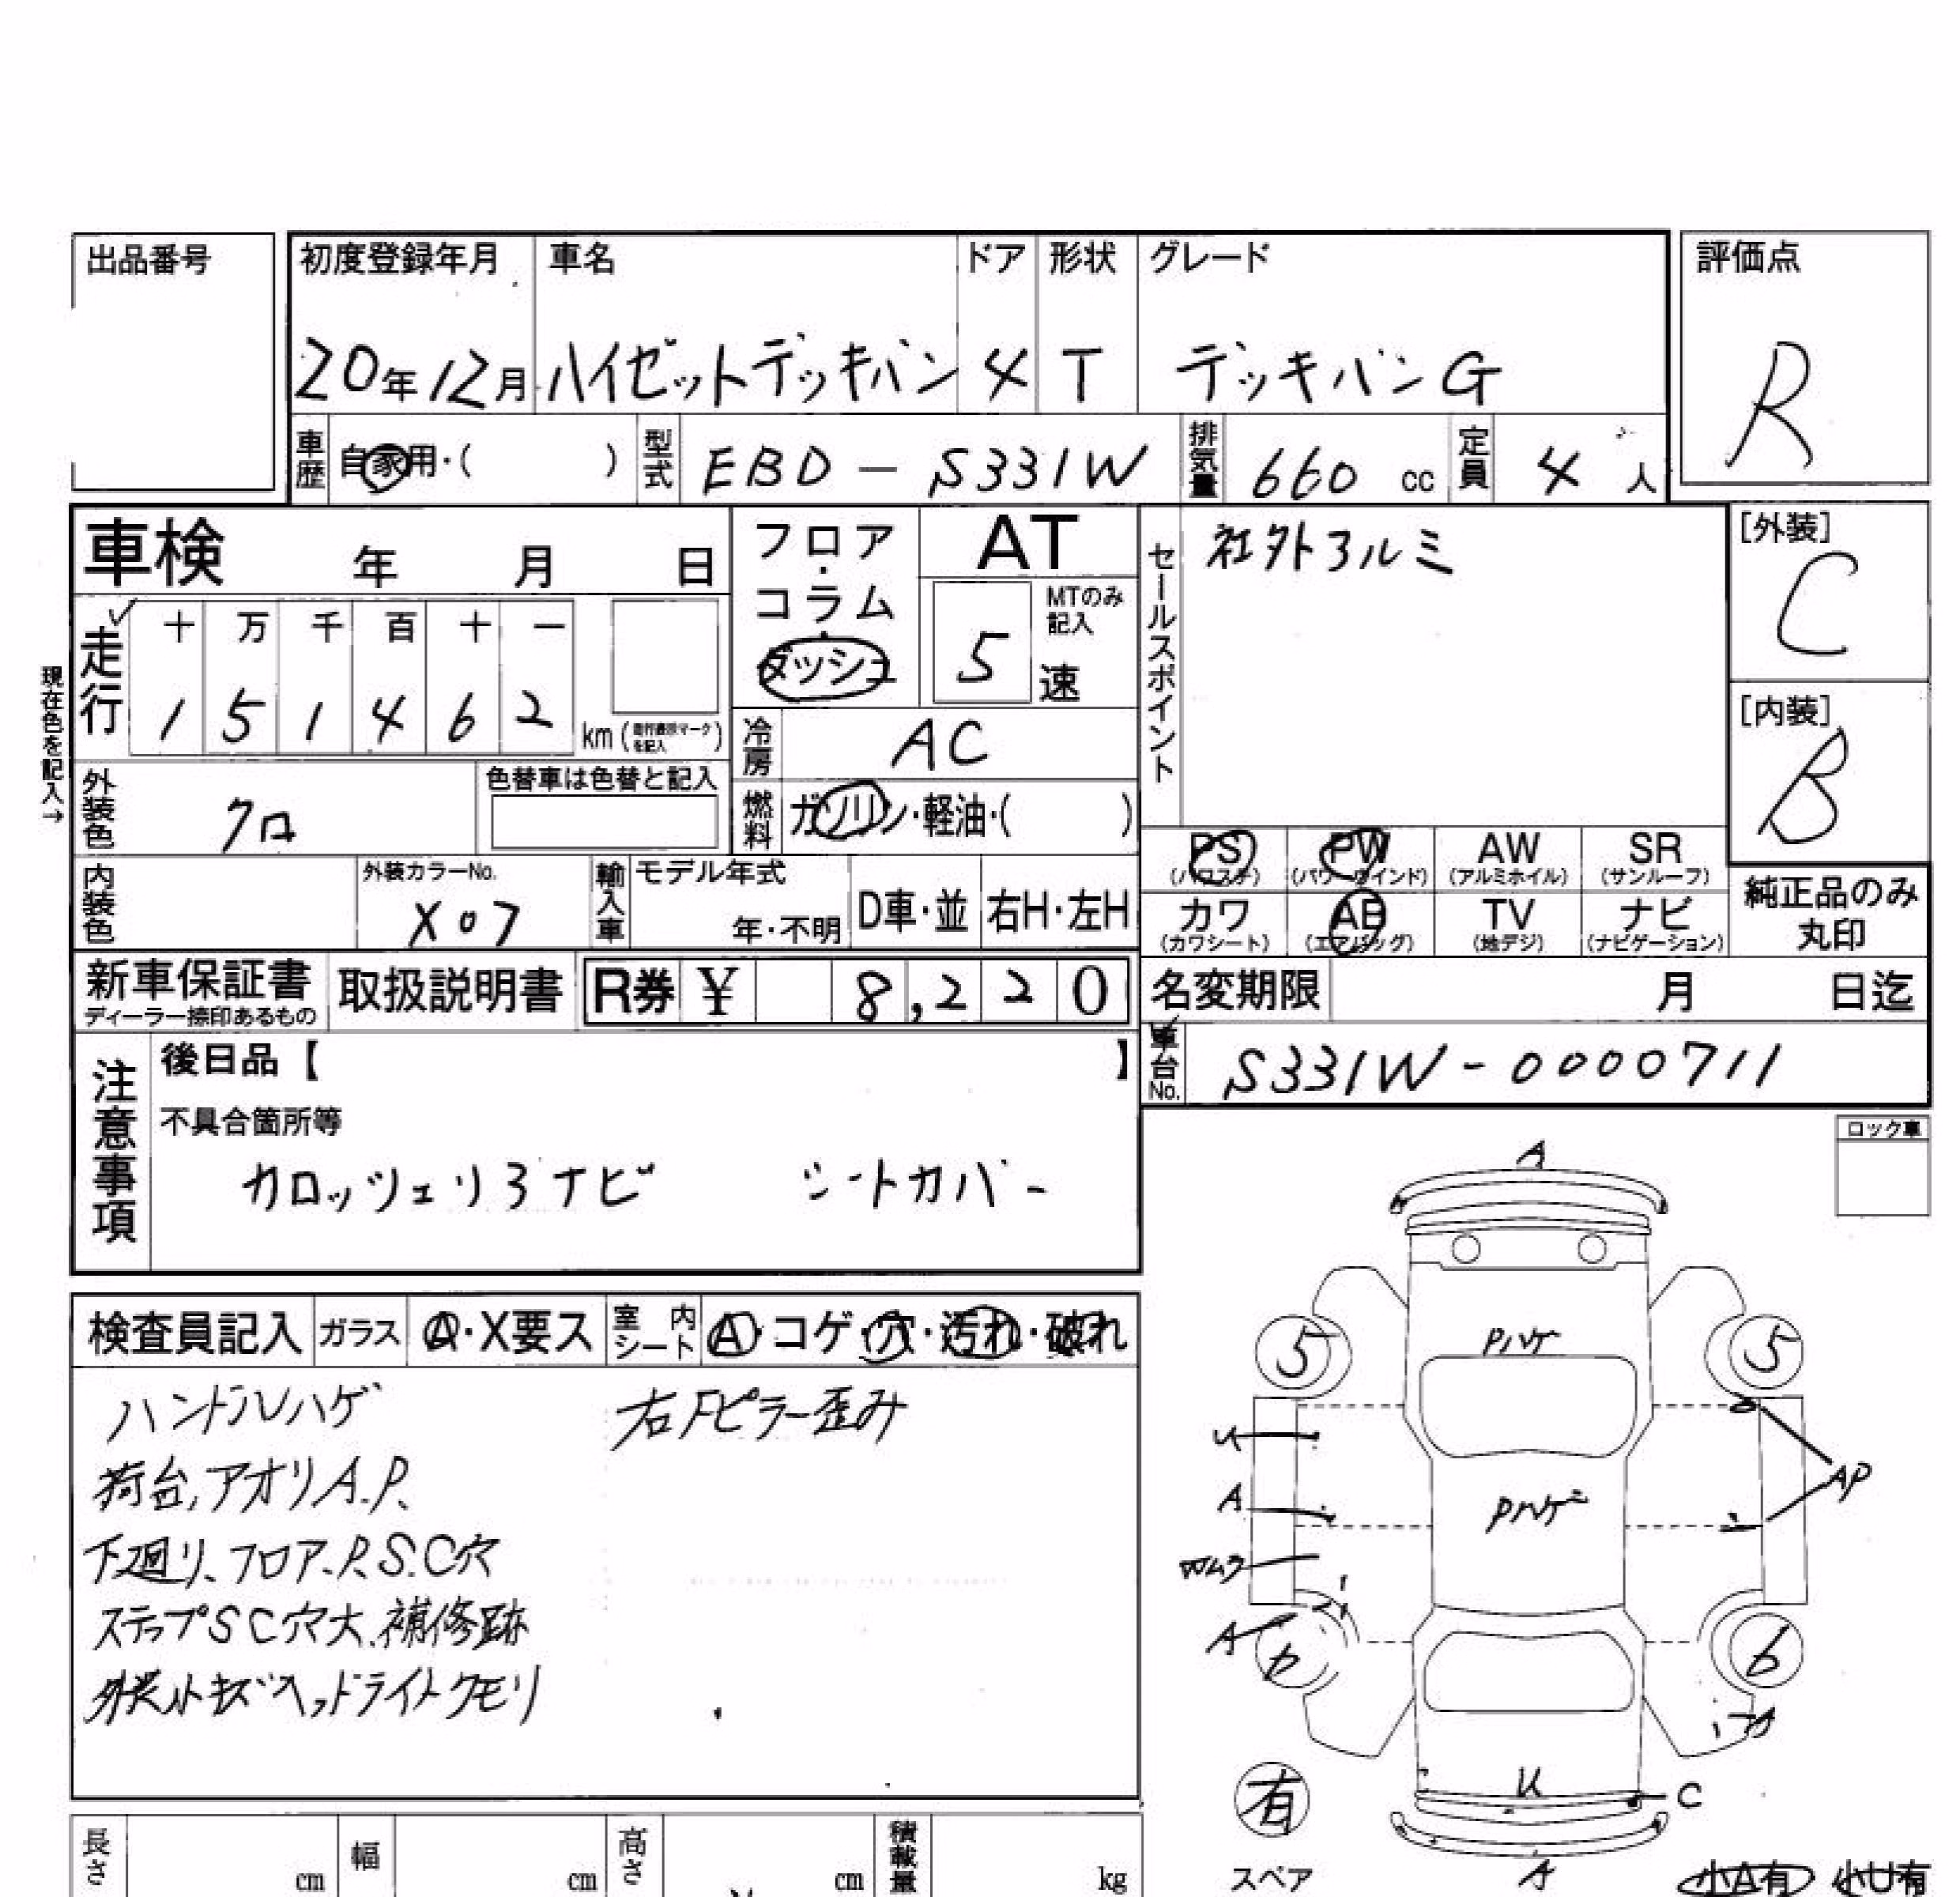 出品番号 初度登録年月 車名 ドア 形状 グレード 評価点
20年12月 ハイゼットデッキバン 4 T デッキバンG R
車歴 自家用・( ) 型式 EBD-S331W 排気量 660 cc 定員 4 人
車検 年 月 日 フロア・コラム・ダッシュ AT セールスポイント 社外アルミ [外装] C
5 速 MTのみ記入
現在色を記入→
走行 十 万 千 百 十 一
1 5 1 4 6 2 km (走行表示マークを記入)
冷房 AC [内装] B
外装色 クロ 色替車は色替と記入 燃料 ガソリン・軽油・( )
PS (パワステ) PW (パワーウインド) AW (アルミホイル) SR (サンルーフ)
内装色 外装カラーNo. X07 輸入車 モデル年式 年・不明 D車・並 右H・左H
カワ (カワシート) AB (エアバッグ) TV (地デジ) ナビ (ナビゲーション) 純正品のみ丸印
新車保証書 ディーラー捺印あるもの 取扱説明書 R券 ¥ 8,220 名変期限 月 日迄
車台No. S331W-0000711
注意事項 後日品【 】
不具合箇所等
カロッツェリアナビ シートカバー
ロック車
検査員記入 ガラス A・X要ス 室内シート A・コゲ・穴・汚れ・破れ
ハンドルハゲ 右Fピラー歪み
荷台,アオリA.P.
下廻り、フロア.P.S.C穴
ステップSC穴大、補修跡
外装小キズヘッドライトクモリ
A
5 Pハゲ 5
U
A Pハゲ AP
A
6 6
A
U C
有
スペア A 小A有 小U有
長さ cm 幅 cm 高さ cm 積載量 kg